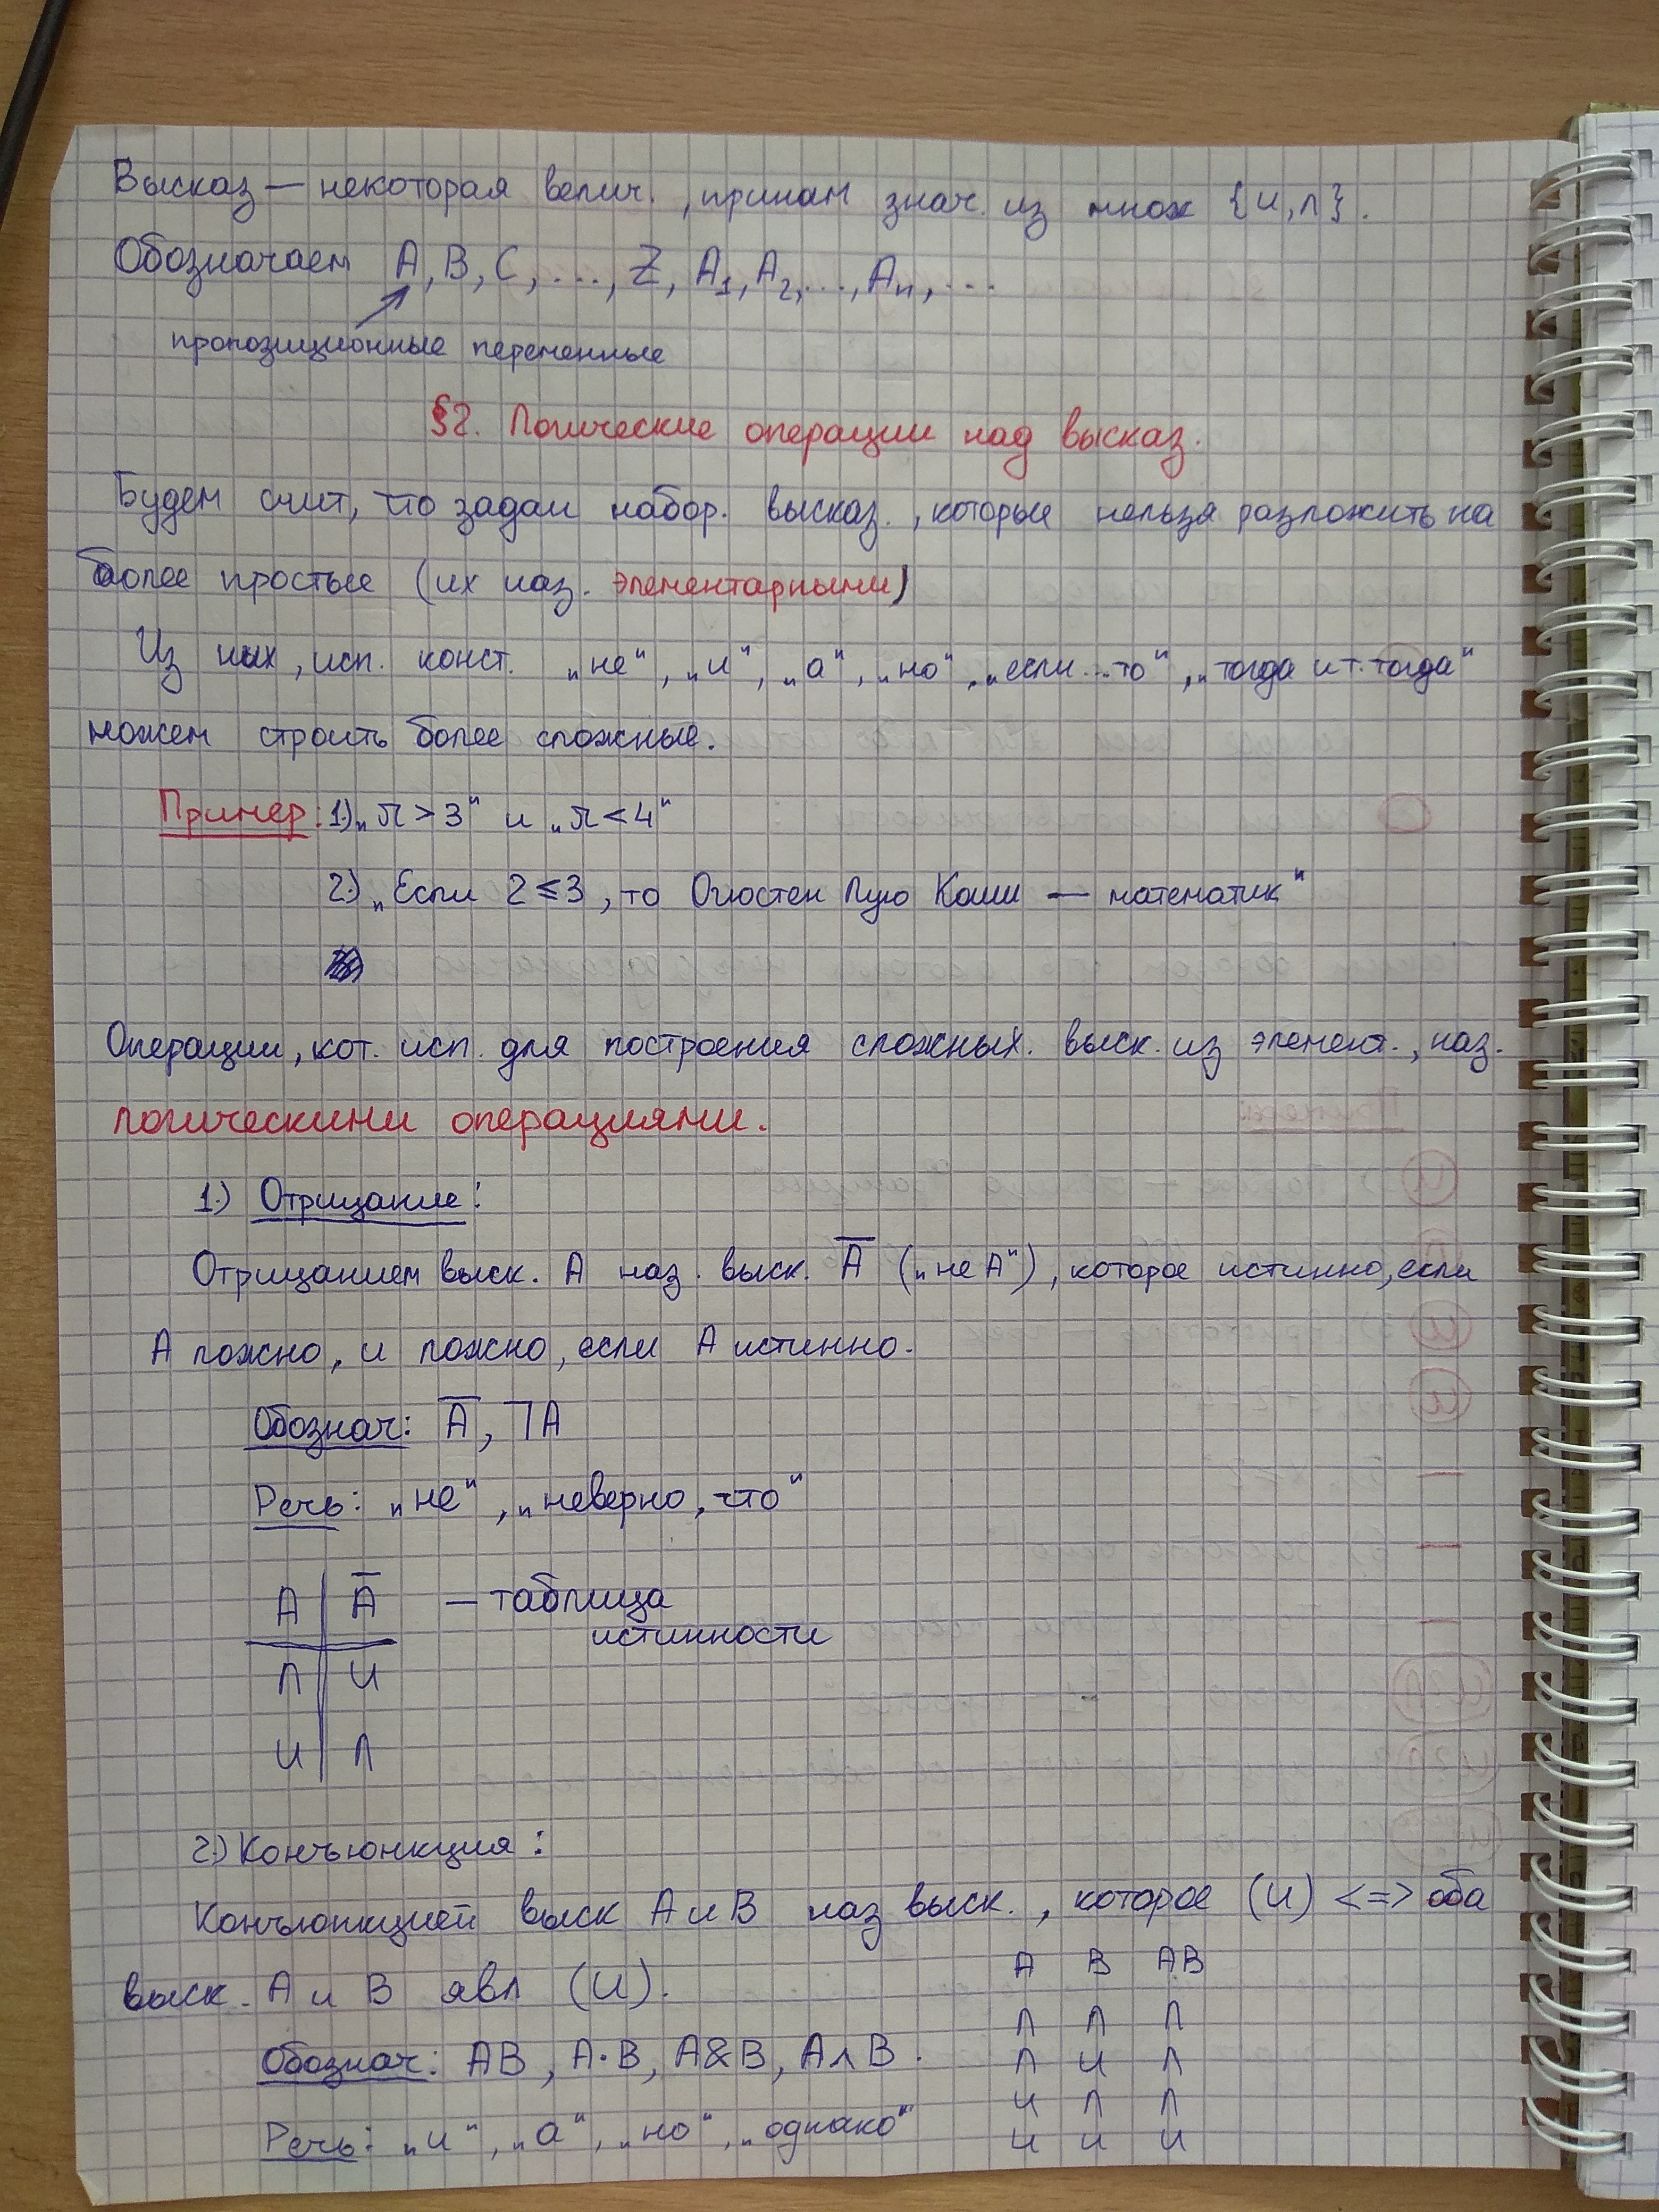 Высказ — некоторая велич., приним знач. из множ {и,л}.
Обозначаем A, B, C, ..., Z, A₁, A₂, ..., Aₙ, ...
пропозиционные переменные
§2. Логические операции над высказ.
Будем счит, что задан набор. высказ., которые нельзя разложить на
более простые (их наз. элементарными)
Из них, исп. конст. „не“, „и“, „а“, „но“, „если...то“, „тогда и т. тогда“
можем строить более сложные.
Пример: 1.) „π > 3“ и „π < 4“
2.) „Если 2 ⩽ 3, то Огюстен Луи Коши — математик“
Операции, кот. исп. для построения сложных. выск. из элемент., наз.
логическими операциями.
1.) Отрицание:
Отрицанием выск. A наз. выск. A̅ („не A“), которое истинно, если
A ложно, и ложно, если A истинно.
Обознач: A̅, ⏋A
Речь: „не“, „неверно, что“
A | A̅ — таблица
истинности
Л | И
И | Л
2.) Конъюнкция:
Конъюнкцией выск A и B наз выск., которое (И) <=> оба
выск. A и B явл (И).
Обознач: AB, A·B, A&B, A∧B.
Речь: „и“, „а“, „но“, „однако“
A B AB
Л Л Л
Л И Л
И Л Л
И И И